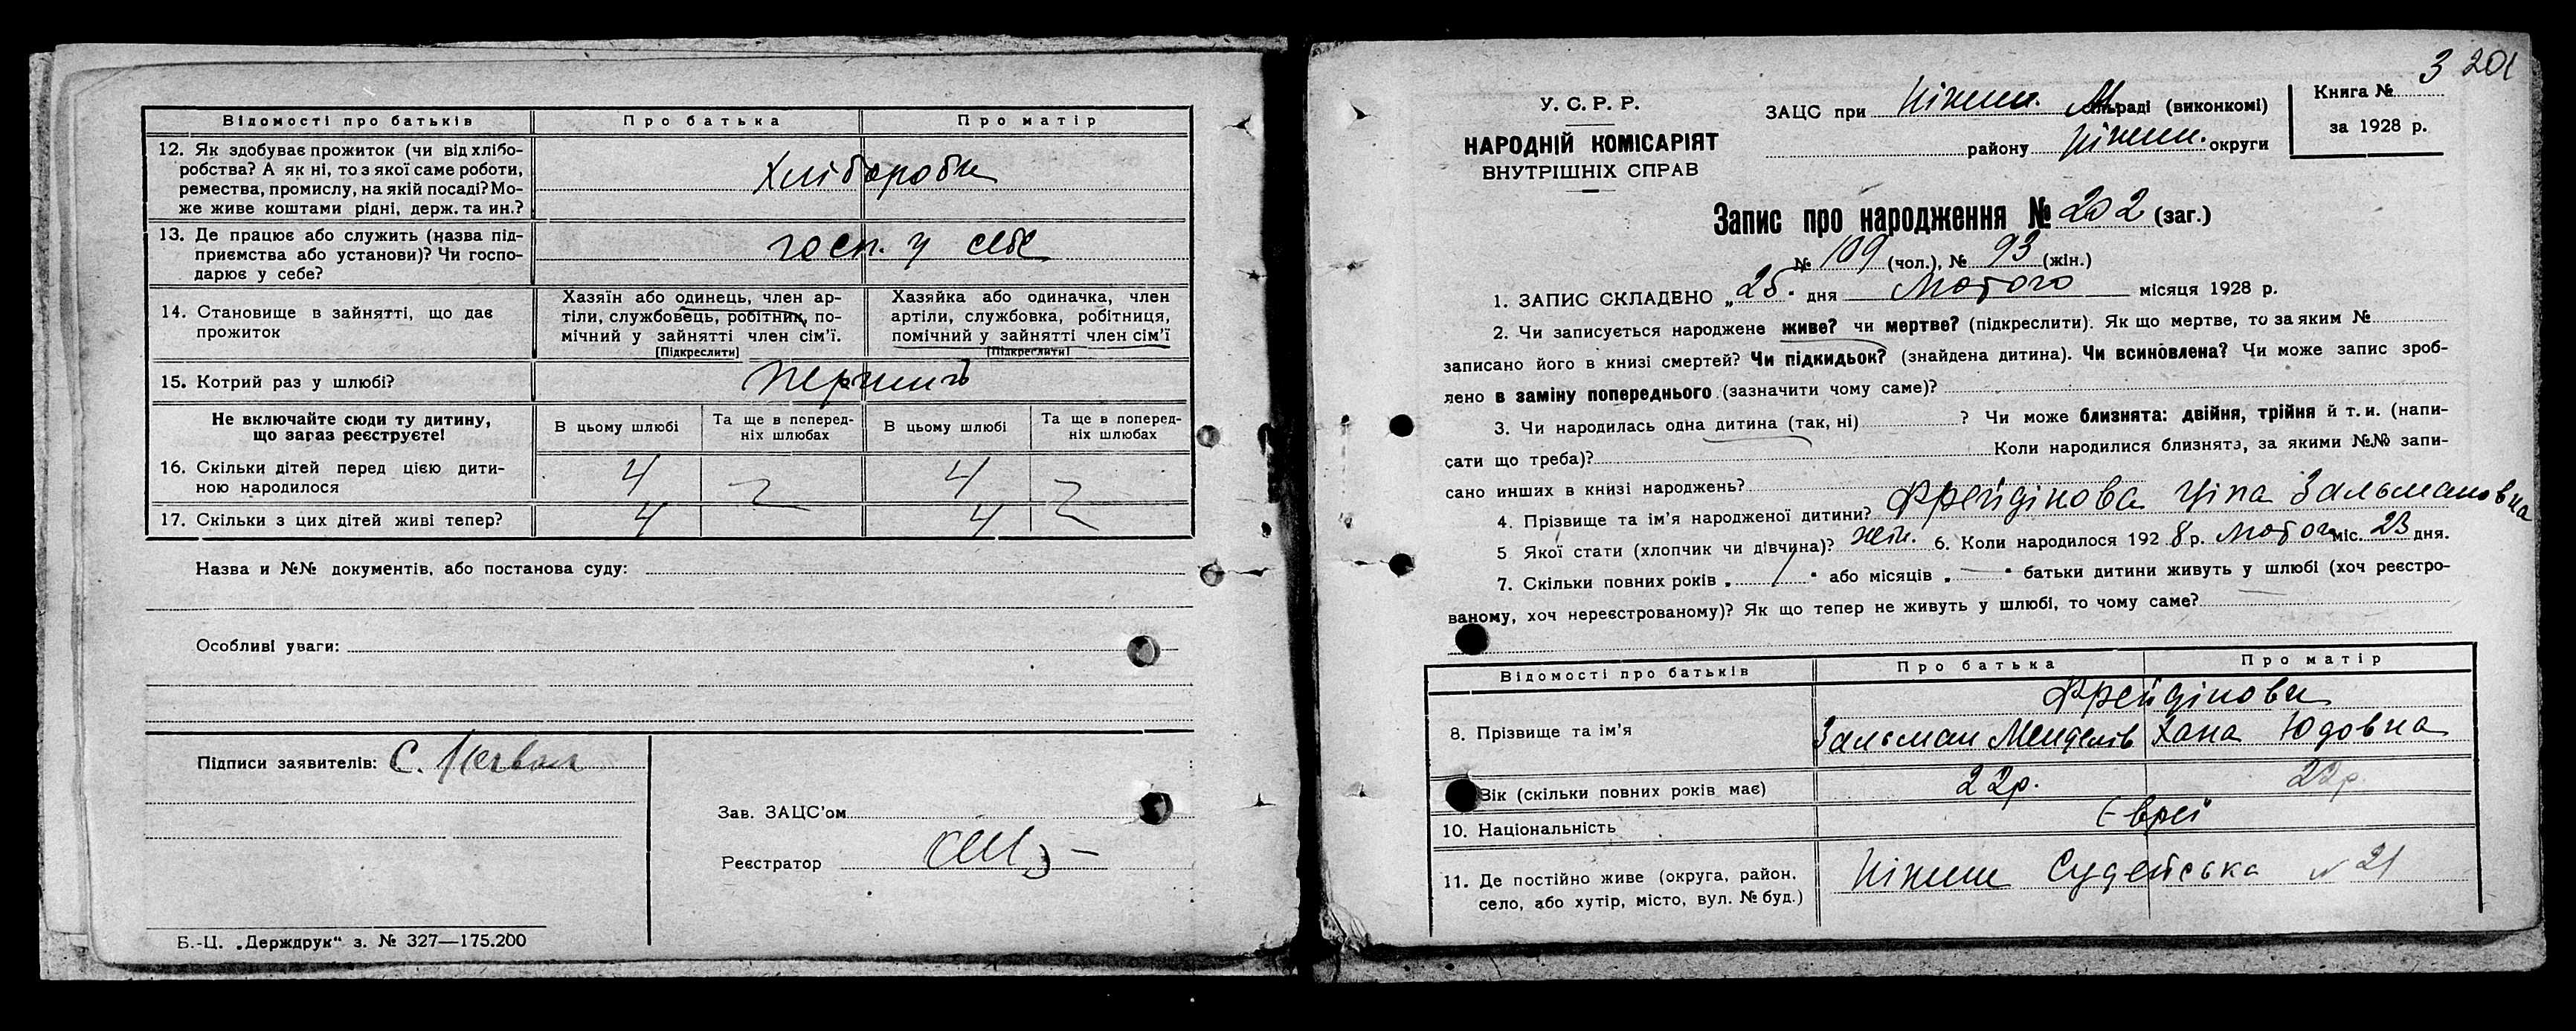 Відомості про батьків Про батька Про матір
12. Як здобуває прожиток (чи від хлібо-
робства? А як ні, то з якої саме роботи,
ремества, промислу, на якій посаді? Мо-
же живе коштами рідні, держ. та ин.?
Хлібороби
13. Де працює або служить (назва під-
приємства або установи)? Чи госпо-
дарює у себе?
госп. у себе
14. Становище в зайнятті, що дає
прожиток
Хазяїн або одинець, член ар-
тіли, службовець, робітник, по-
мічний у зайнятті член сім'ї.
[Підкреслити]
Хазяйка або одиначка, член
артіли, службовка, робітниця,
помічний у зайнятті член сім'ї
[Підкреслити]
15. Котрий раз у шлюбі?
Не включайте сюди ту дитину,
що загаз реєструєте!
В цьому шлюбі
Та ще в поперед-
ніх шлюбах
В цьому шлюбі
Та ще в поперед-
ніх шлюбах
16. Скільки дітей перед цією дити-
ною народилося
4 4
17. Скільки з цих дітей живі тепер?
4 4
Назва и №№ документів, або постанова суду:
Особливі уваги:
Підписи заявителів: С.
Зав. ЗАЦС'ом
Реєстратор
Б.-Ц. „Держдрук“ з. № 327—175.200
3 201
У. С. Р. Р.
НАРОДНІЙ КОМІСАРІЯТ
ВНУТРІШНІХ СПРАВ
ЗАЦС при Ніжин. М. сільраді (виконкомі)
району Ніжин. округи
Книга №
за 1928 р.
Запис про народження № 202 (заг.)
№ 109 (чол.), № 93 (жін.)
1. ЗАПИС СКЛАДЕНО „25“ дня Лютого місяця 1928 р.
2. Чи записується народжене живе? чи мертве? (підкреслити). Як що мертве, то за яким №
записано його в книзі смертей? Чи підкидьок? (знайдена дитина). Чи всиновлена? Чи може запис зроб-
лено в заміну попереднього (зазначити чому саме)?
3. Чи народилась одна дитина (так, ні) ? Чи може близнята: двійня, трійня й т. и. (напи-
сати що треба)? Коли народилися близнята, за якими №№ запи-
сано инших в книзі народжень?
4. Прізвище та ім'я народженої дитини? Фрейдінова Ціпа Зальмановна
5 Якої стати (хлопчик чи дівчина)? жін. 6. Коли народилося 192 8 р. Лютого міс. 23 дня.
7. Скільки повних років „ 7 “ або місяців „ — “ батьки дитини живуть у шлюбі (хоч реєстро-
ваному, хоч нереєстрованому)? Як що тепер не живуть у шлюбі, то чому саме?
Відомості про батьків Про батька Про матір
8. Прізвище та ім'я
Фрейдінови
Зальман Менделів Хана Юдовна
Вік (скільки повних років має) 22р. 22р.
10. Національність Євреї
11. Де постійно живе (округа, район,
село, або хутір, місто, вул. № буд.)
Ніжин Судейська № 21